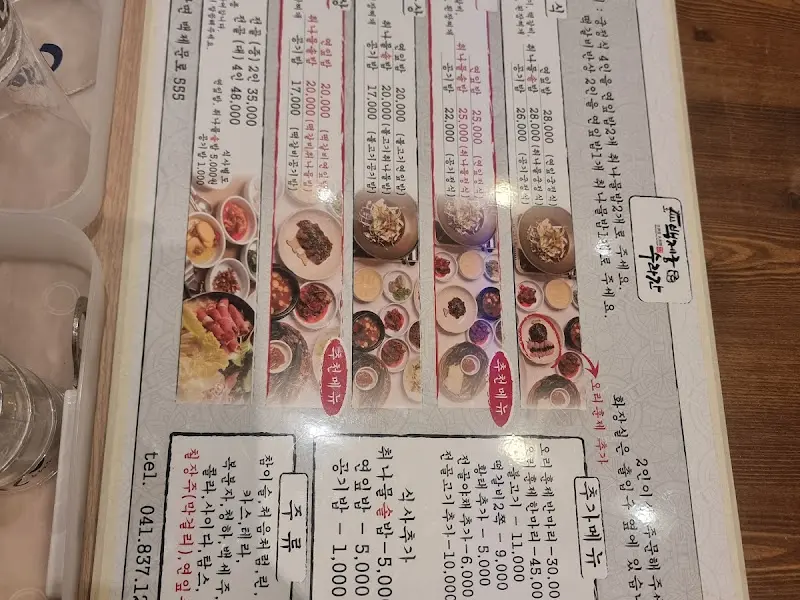 궁정식 4인을 연잎밥2개 취나물밥2개로 주세요.
떡갈비반상 2인을 연잎밥1개 취나물밥1개로 주세요.
백제궁
수라간
연잎밥 28,000 (연잎궁정식)
취나물솥밥 28,000 (취나물궁정식)
공기밥 26,000 (공기궁정식)
연잎밥 25,000 (연잎정식)
취나물솥밥 25,000 (취나물정식)
공기밥 22,000 (공기정식)
연잎밥 20,000 (불고기연잎밥)
취나물솥밥 20,000 (불고기취나물밥)
공기밥 17,000 (불고기공기밥)
연잎밥 20,000 (떡갈비연잎밥)
취나물솥밥 20,000 (떡갈비취나물밥)
공기밥 17,000 (떡갈비공기밥)
전골 (중) 2인 35,000
전골 (대) 4인 48,000
식사별도
연잎밥, 취나물솥밥 5,000원
공기밥 1,000
백제문로 555
오리 훈제 추가
추천메뉴
추천메뉴
2인이
주문해주
화장실은 출입구 옆에 있습니
추가메뉴
오리 훈제반마리 - 30,00
오리 훈제한마리 - 45,00
불고기 - 11,000
떡갈비2쪽 - 9,000
황태추가 - 5,000
전골야채추가 - 6,000
전골고기추가 - 10,000
식사추가
취나물솥밥 - 5,00
연잎밥 - 5,000
공기밥 - 1,000
주류
참이슬, 처음처럼, 린,
카스, 테라,
복분자, 청하, 백세주,
콜라, 사이다, 탐스,
칠갑주(막걸리), 연잎
tel. 041.837.1